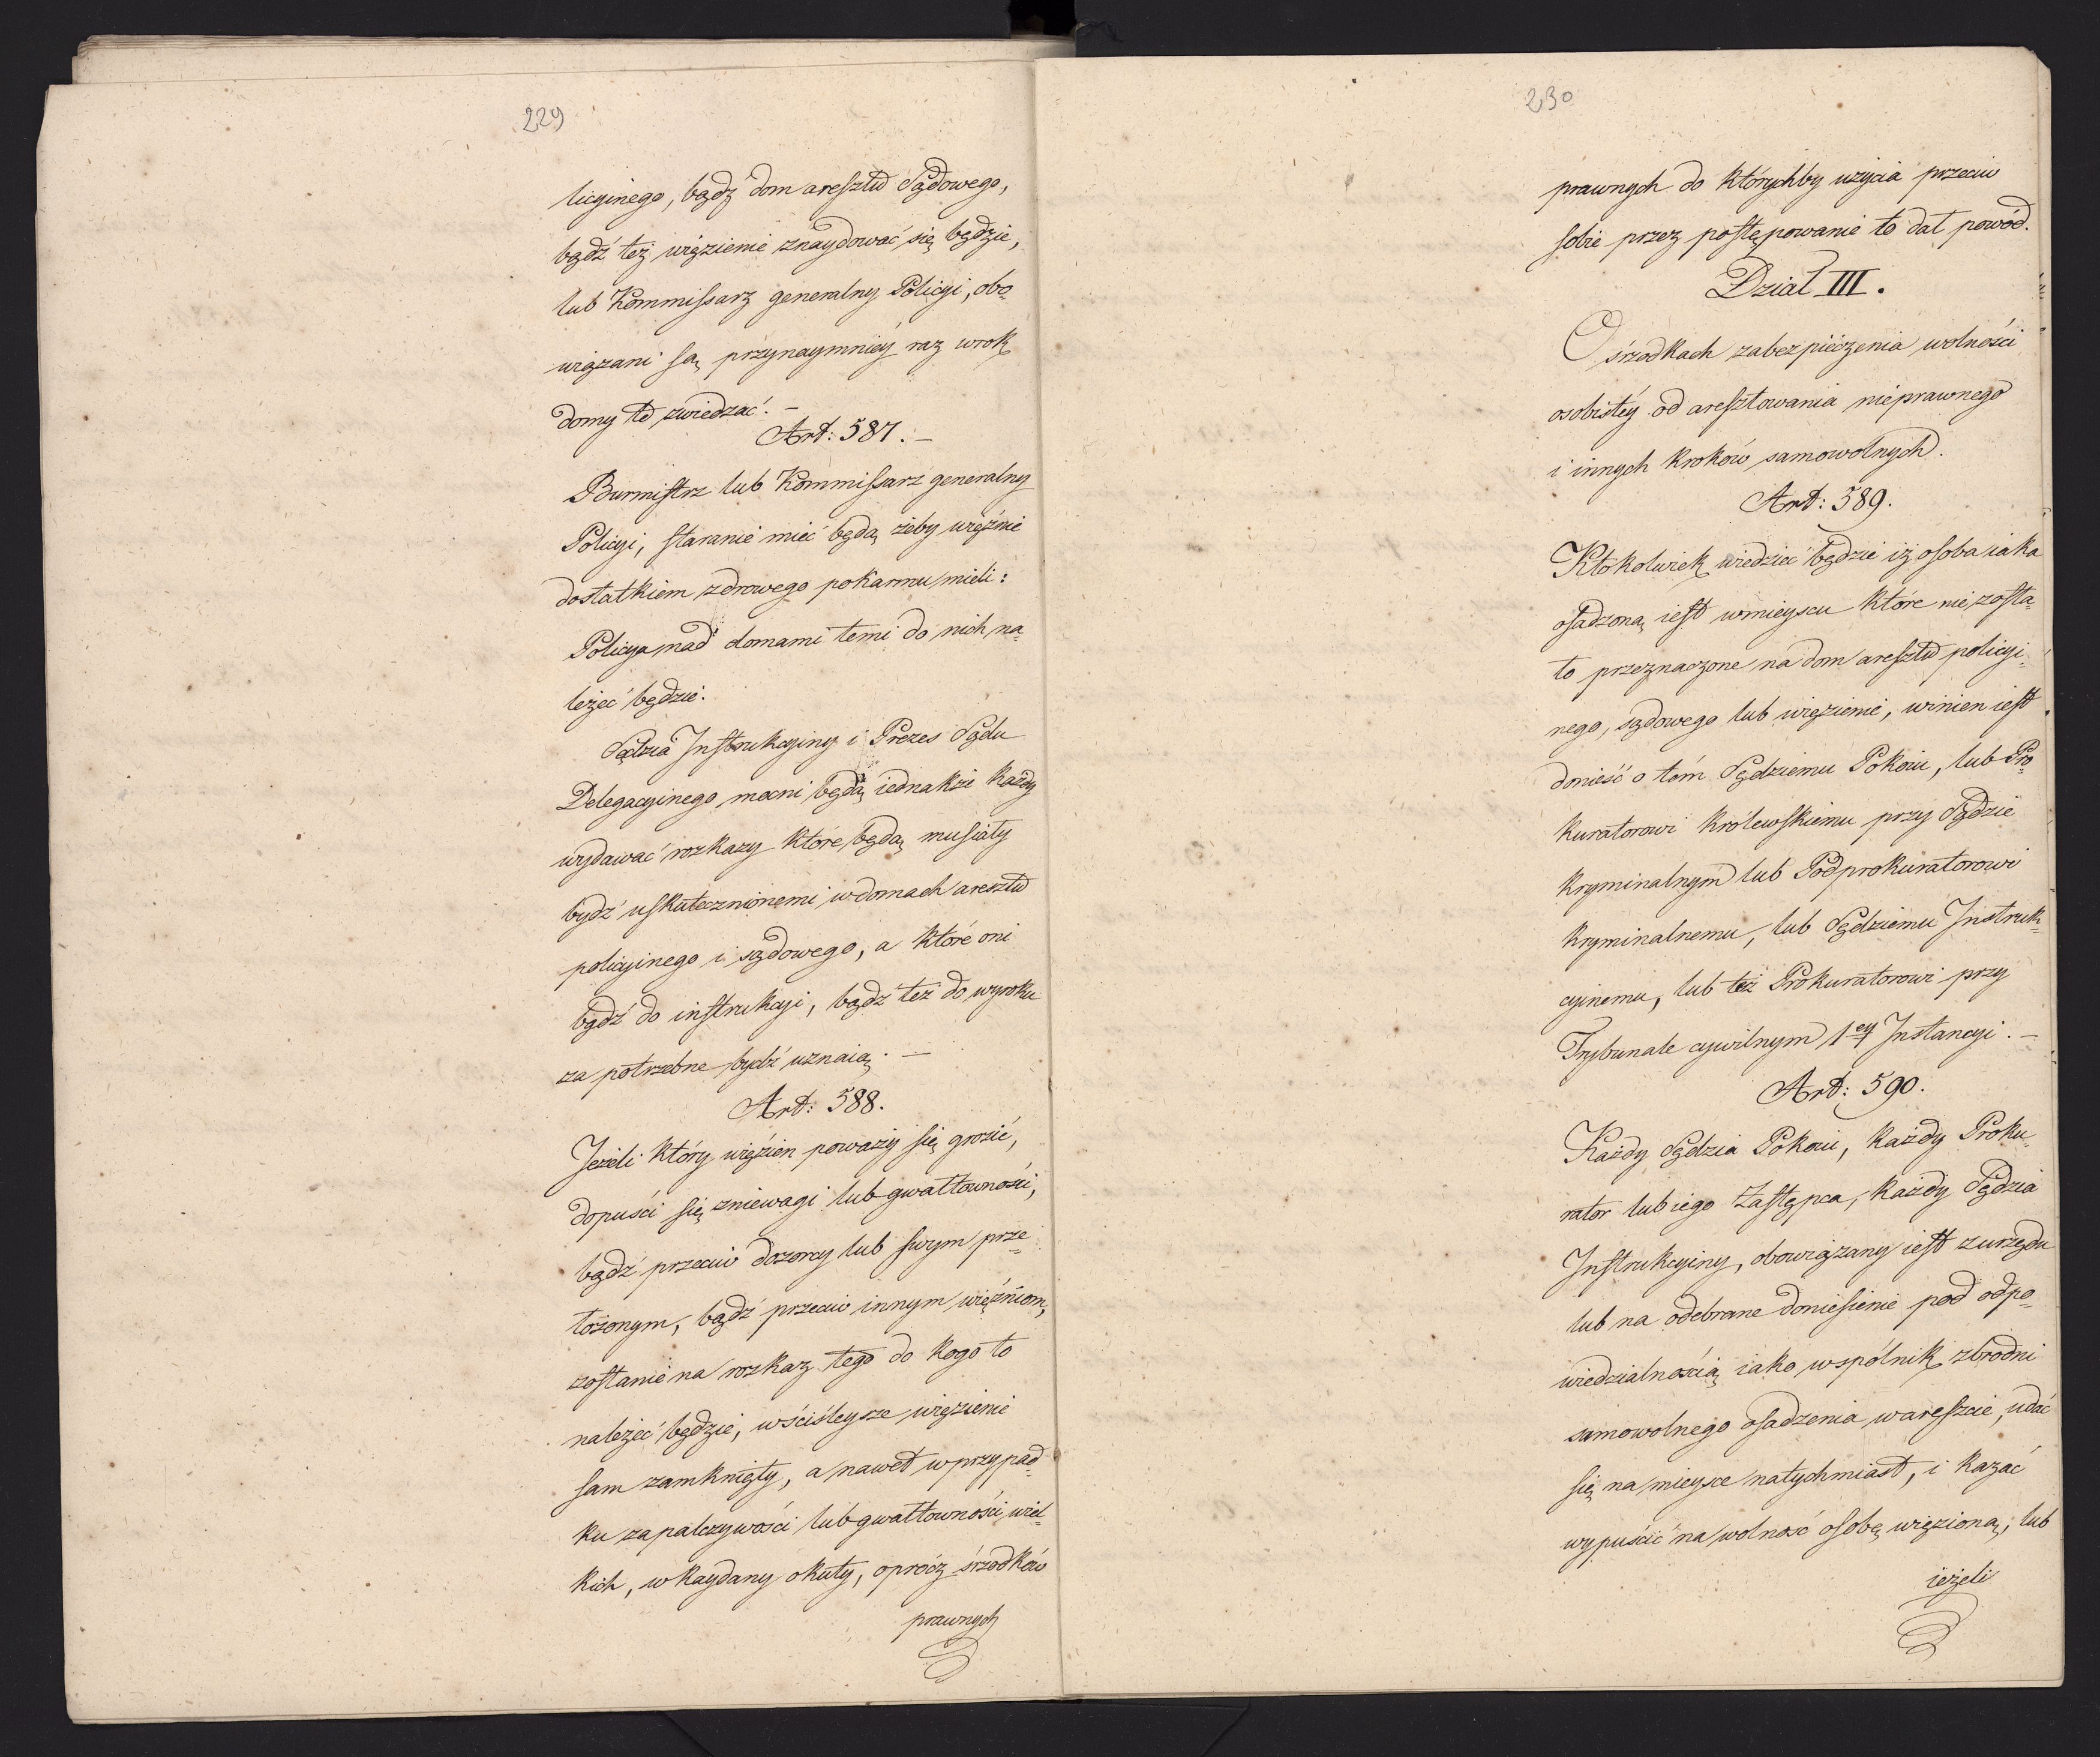 229
licyinego, bądź dom aresztu Sądowego,
bądź też więzienie znaydować się będzie,
lub Kommissarz generalny Policyi, obo-
wiązani są, przynaymniéy raz wrok
domy te zwiedzać. –
Art: 587. –
Burmistrz lub Kommissarz generalny
Policyi, staranie mieć będą, żeby więźnie
dostatkiem zdrowego pokarmu mieli:
Policya nad domami temi do nich na-
leżeć będzie.
Sędzia Instrukcyiny i Prezes Sądu
Delegacyinego mocni będą iednakże każdy
wydawać rozkazy które będą musiały
bydź uskutecznionemi w domach aresztu
policyinego i sądowego, a które oni
bądź do instrukcyi, bądź też do wyroku
za potrzebne bydź uznaią. –
Art: 588.
Jeżeli który więzien poważy się grozić,
dopuści się zniewagi lub gwałtowności,
bądź przeciw dozorcy lub swym prze-
łożonym, bądź przeciw innym więźniom,
zostanie na rozkaz tego do kogo to
należeć będzie, wściśleysze więzienie
sam zamknięty, a nawet w przypad-
ku zapalczywości lub gwałtowności wiel-
kich, w kaydany okuty, oprócz śrzodków
prawnych
230
prawnych do którychby użycia przeciw
sobie przez postępowanie to dał powód.
Dział III.
O śrzodkach zabezpieczenia wolności
osobistéy od aresztowania nieprawnego
i innych kroków samowolnych.
Art: 589.
Ktokolwiek wiedzieć będzie iż osoba iaka
osadzoną iest wmieyscu które nie zosta-
ło przeznaczone na dom aresztu policyi-
nego, sądowego lub więzienie, winien iest
donieść o tém Sędziemu Pokoiu, lub Pro-
kuratorowi Królewskiemu przy Sądzie
Kryminalnym lub Podprokuratorowi
Kryminalnemu, lub Sędziemu Instruk-
cyinemu, lub też Prokuratorowi przy
Trybunale cywilnym 1ey Instancyi. –
Art: 590.
Każdy Sędzia Pokoiu, każdy Proku-
rator lub iego Zastępca, każdy Sędzia
Instrukcyiny, obowiązany iest z urzędu
lub na odebrane doniesienie pod odpo-
wiedzialnością iako wspólnik zbrodni
samowolnego osadzenia w areszcie, udać
się na mieysce natychmiast, i kazać
wypuścić na wolność osobę więzioną; lub
ieżeli